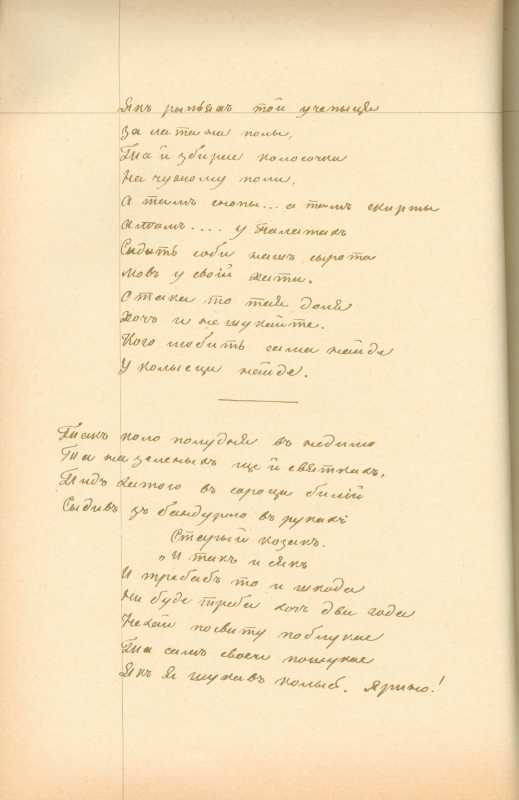 Якъ рыпьяхъ той учепыця
За латани полы,
Та й збирае колосочки
На чужому поли,
А тамъ снопы... а тамъ скирты
А тамъ.... у палатахъ
Сыдыть соби нашъ сырота
Мовъ у своій хати.
Отака то тая доля
Хочъ и не шукайте.
Кого любить сама найде
У колысци найде.
Такъ коло полудня въ недилю
Та на зеленыхъ ще й святкахъ,
Пидъ хатою въ сороци билій
Сыдивъ зъ бандурою въ рукахъ
Старый козакъ.
„И такъ и сякъ
И требабъ то и шкода
На буде треба хочъ два года
Нехай посвиту поблукае
Та самъ своеи пошукае
Якъ я шукавъ колысь. Ярино!